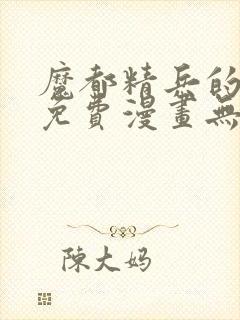 魔都精兵的
免費漫畫無
陳大妈